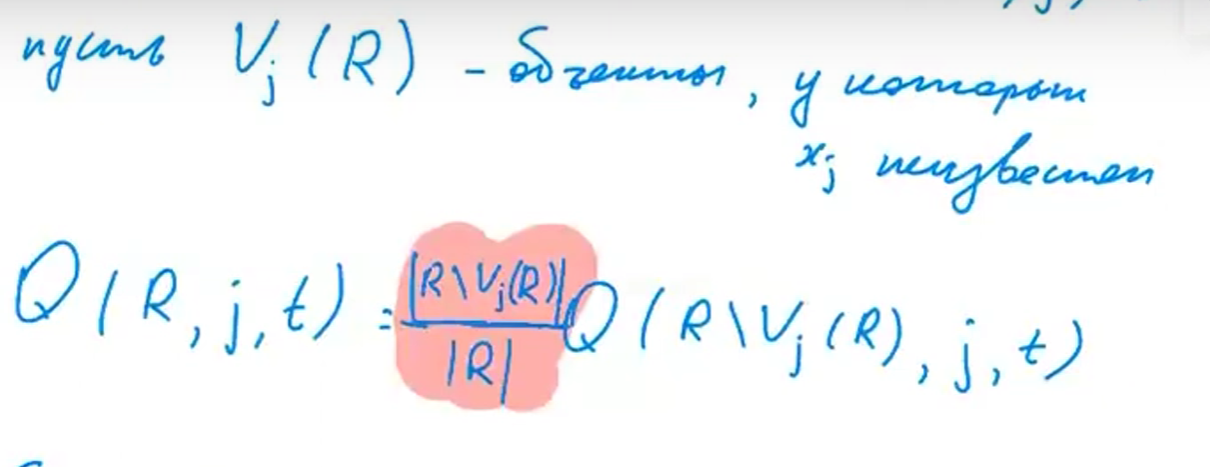 пусть V_j(R) - объекты, у которых
x_j неизвестен
Q(R, j, t) = |R\V_j(R)| / |R| Q(R\V_j(R), j, t)